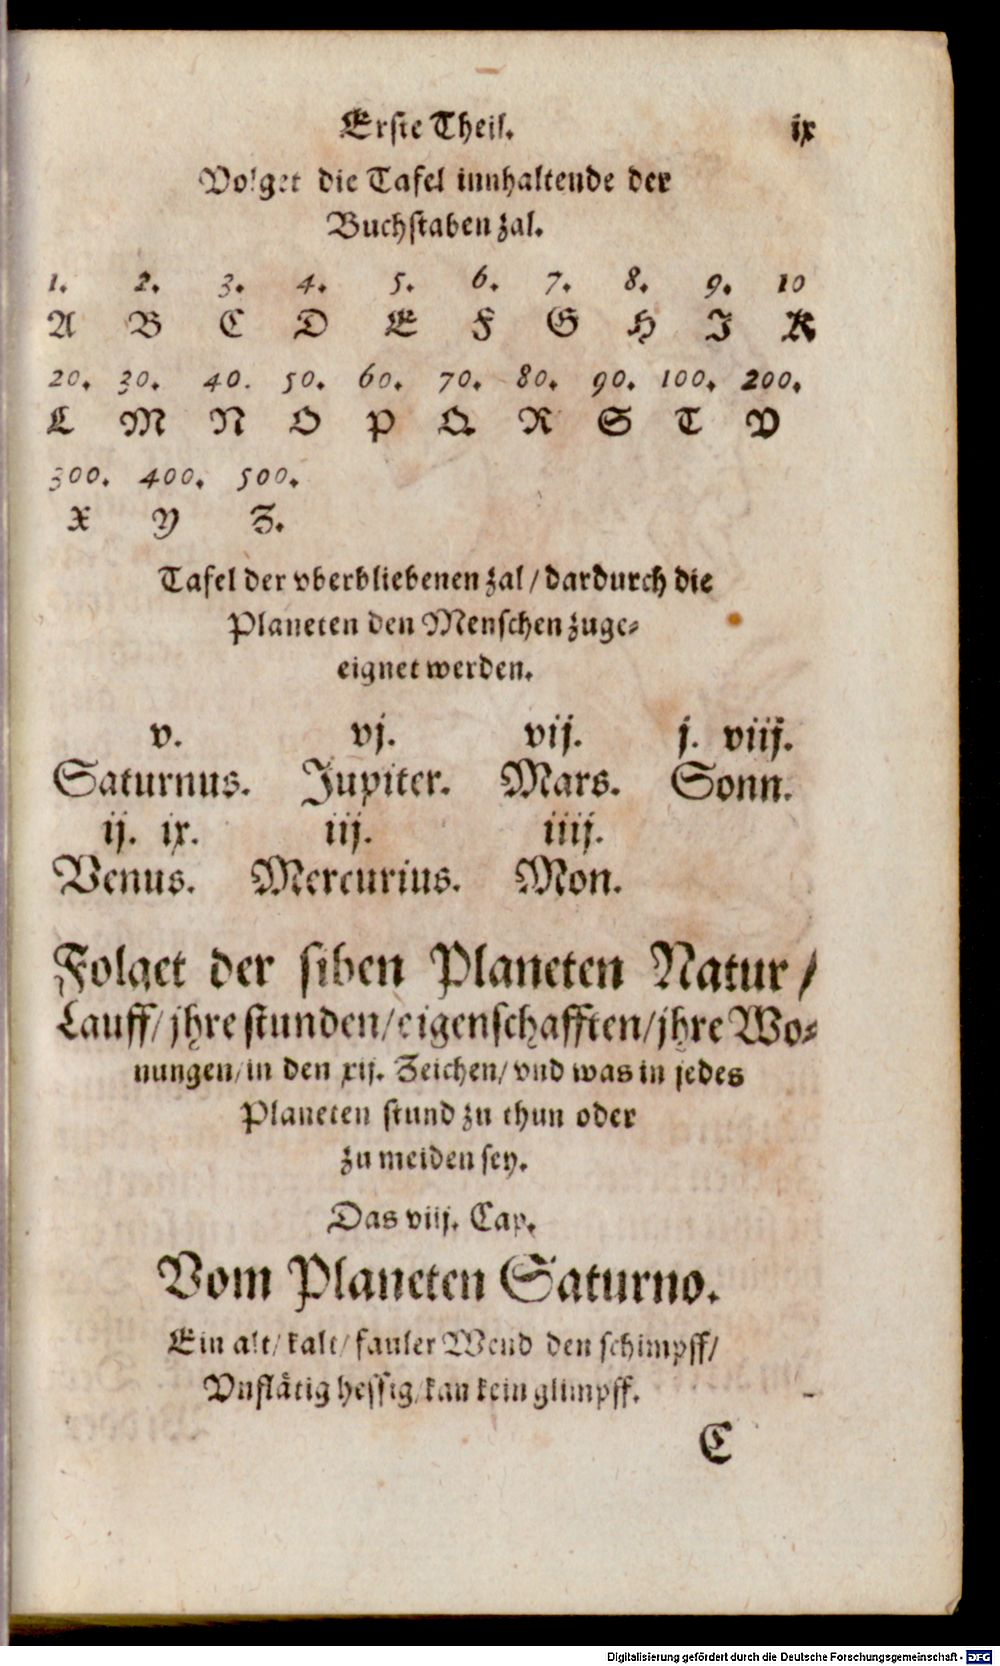 Erste Theil. ix
Volget die Tafel innhaltende der
Buchstaben zal.
1. 2. 3. 4. 5. 6. 7. 8. 9. 10
A B C D E F G H I K
20. 30. 40. 50. 60. 70. 80. 90. 100. 200.
L M N O P Q R S T V
300. 400. 500.
X Y Z.
Tafel der vberbliebenen zal / dardurch die
Planeten den Menschen zuge-
eignet werden.
v. vj. vij. j. viij.
Saturnus. Jupiter. Mars. Sonn.
ij. ix. iij. iiij.
Venus. Mercurius. Mon.
Folget der siben Planeten Natur /
Lauff / jhre stunden / eigenschafften / jhre Wo-
nungen / in den xij. Zeichen / vnd was in jedes
Planeten stund zu thun oder
zu meiden sey.
Das viij. Cap.
Vom Planeten Saturno.
Ein alt / kalt / fauler Wend den schimpff /
Vnflätig hessig / kan kein glimpff.
C
Digitalisierung gefördert durch die Deutsche Forschungsgemeinschaft - DFG